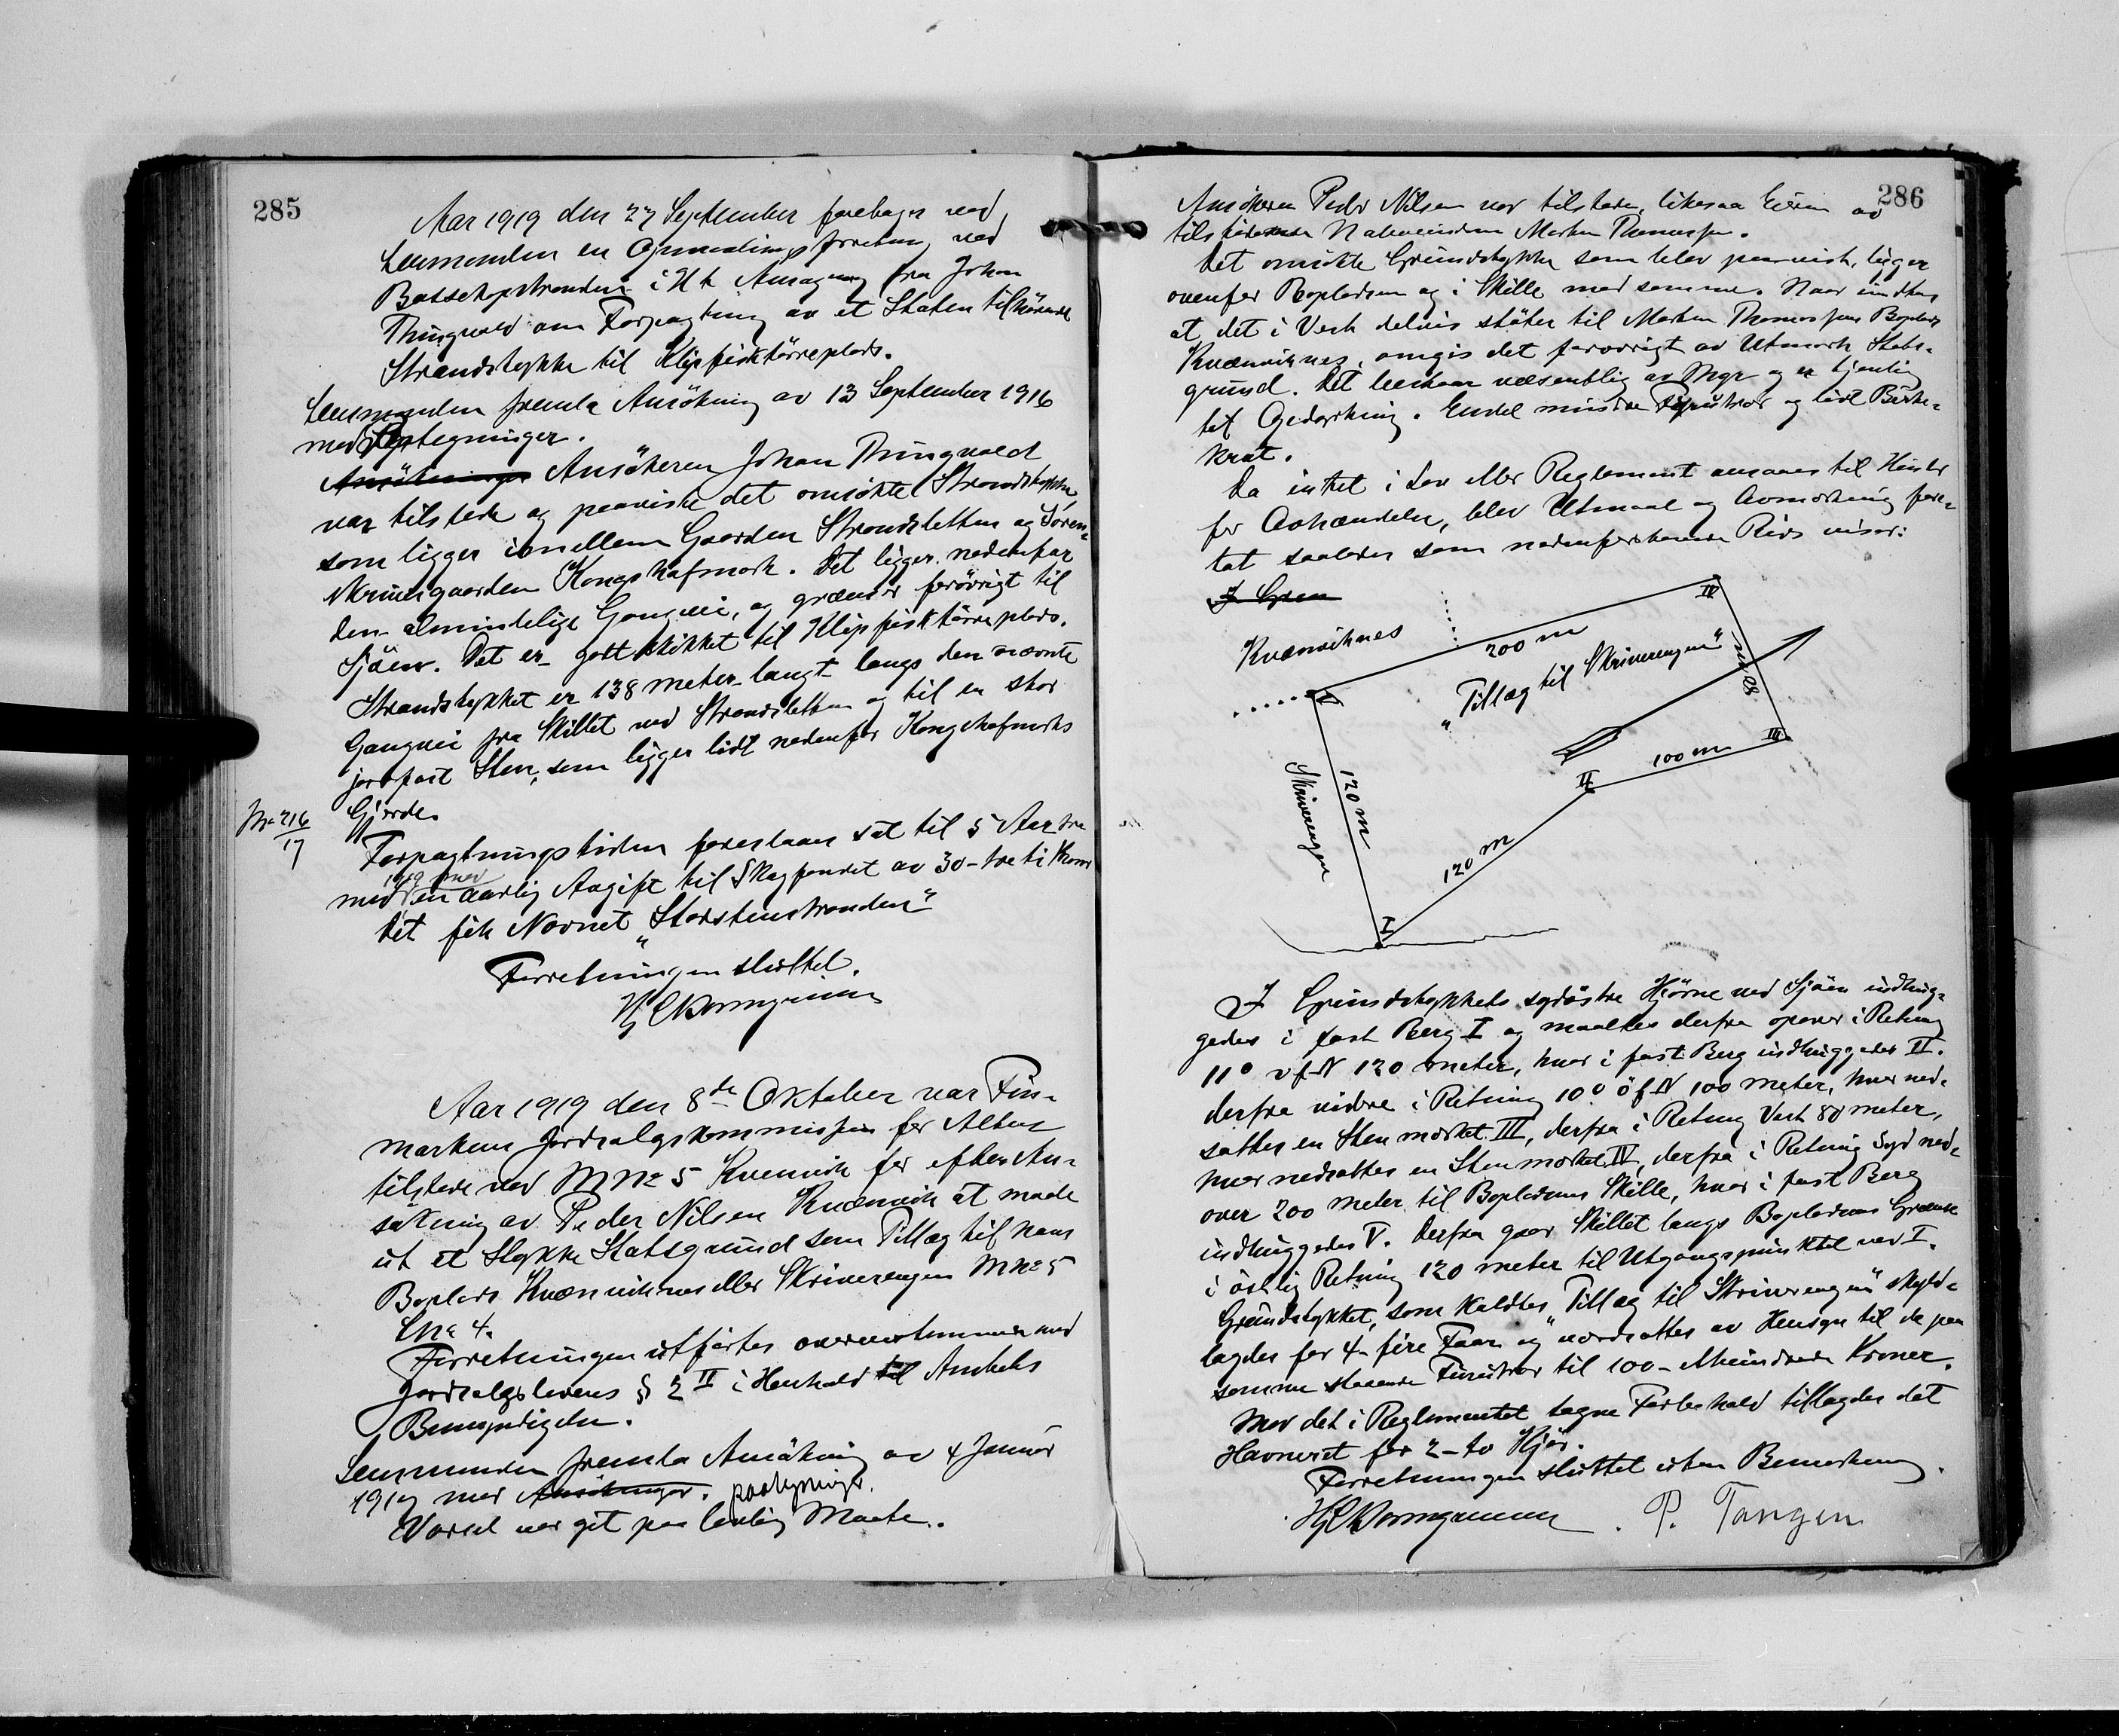 285
Aar 1919 den 27 September foretages ved
Lensmanden en Opmaalingsforretning ved
Bossekopstranden i H t Ansøgning fra Johan
Thingvold om Forpagtning av et Staten tilhørende
Strandstykke til Klipfisktørreplads.
Lensmanden fremla Ansökning av 13 September 1916
med Paategninger.
Ansökeren Johan Thingvold
var tilstede og paaviste det omsökte Strandstykke
som ligger imellem Gaarden Strandsletten og Soren-
skrivergaarden Kongshofmark. Det ligger nedenfor
den almindelige Gangvei, og grænser forövrigt til
Sjöen. Det er godt skikket til Klipfisktörreplads.
Strandstykket er 138 meter langt langs den nævnte
Gangvei fra Skillet ved Strandsletten og til en stor
jordfast Sten, som ligger lidt nedenfor Kongshofmarks
Gjærde.
Nr 216
17
Forpagtningstiden foreslaaes sat til 5 Aar fra
1919 mod
en aarlig Avgift til Skogfondet av 30 - tretti Kroner
Det fik Navnet „Storstenstranden“
Forretningen sluttet.
Aar 1919 den 8de Oktober var Fin-
markens Jordsalgskommission for Alten
tilstede ved M No 5 Kvenvik for efter An-
sökning av Peder Nilsen Kvænvik at maale
ut et Stykke Statsgrund som Tillæg til hans
Boplads Kvænviknes eller Skriverengen M No 5
L No 4.
Forretningen utförtes overensstemmende med
Jordsalgslovens § 2 II i Henhold til Amtets
Bemyndigelse.
Lensmanden fremla Ansökning av 4 Januar
1917 med Ansökninger. paategninger.
Varsel var git paa lovlig Maate.
286
Ansökeren Peder Nilsen var tilstede, likesaa Eieren av
tilstötende Naboeiendom Morten Thomassen.
Det omsökte Grundstykke som blev paavist, ligger
ovenfor Bopladsen og i Skille med samme. Naar undtas
at det i Vest delvis stöter til Morten Thomassens Boplads
Kvænviknes, omgis det forövrigt av Utmark Stats-
grund. Det bestaar væsentlig av Myr og er tjenlig
til Opdyrkning. Endel mindre Furutrær og lidt Birke-
krat.
Da intet i Lov eller Reglement ansaaes til Hinder
for Avhændelse, blev Utmaal og Avmerkning fore-
tat saaledes som nedenforstaaende Rids viser:
I Gren
IV
Kvænviknes
200 m
„Tillæg til Skriverengen“
80 m
V
III
100 m
II
Skriverengen
120 m
120 m
I
I Grundstykkets sydöstre Hjörne ved Sjöen indhug-
gedes i fast Berg I og maaltes derfra opover i Retning
11° v f N 120 meter, hvor i fast Berg indhuggedes II.
derfra videre i Retning 10° ö f N 100 meter, hvor ned-
sattes en Sten merket III, derfra i Retning Vest 80 meter,
hvor nedsattes en Sten merket IV, derfra i Retning Syd ned-
over 200 meter til Bopladsens Skille, hvor i fast Berg
indhuggedes V. Derfra gaar Skillet langs Bopladsens Grænse
i östlig Retning 120 meter til Utgangspunktet ved I.
Grundstykket, som kaldtes „Tillæg til Skriverengen“ skyld-
lagdes for 4 - fire Faar og værdsattes av Hensyn til de paa
samme staaende Furutrær til 100 - Et hundrede Kroner.
Med det i Reglementet tagne Forbehold tillagdes det
Havneret for 2 - to Kjör.
Forretningen sluttet uten Bemerkning.
P. Tangen